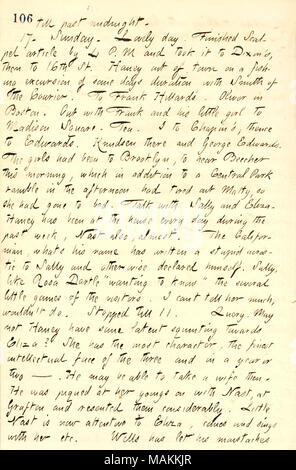 106 till past midnight.
17. Sunday. Lovely day. Finished Scal-
pel article by 4 P.M and took it to Dixon's,
then to 16th St. Haney out of town on a fish-
ing excursion of some days duration with Smith of
the Courier. To Frank Hillards. Oliver in
Boston. Out with Frank and his little girl to
Madison Square. Tea. I to Chapin's, thence
to Edwards. Knudsen there and George Edwards.
The girls had been to Brooklyn, to hear Beecher
this morning, which in addition to a Central Park
ramble in the afternoon had tired out Matty, so
she had gone to bed. Talk with Sally and Eliza.
Haney has been at the house every day during the
past week, Nast also, almost. The Califor-
man, what's his name has written a stupid acros-
tic to Sally and otherwise declared himself. Sally,
like Rosa Dartle "wanting to know" the several
little games of the visitors. I can't tell her much,
wouldn't do. Stopped till 11. Query. May
not Haney have some latent squinting towards
Eliza? She has the most character, the finest
intellectual face of the three and in a year or
two —. He may be able to take a wife then.
He was piqued at her goings on with Nast, at
Grafton and resented them considerably. Little
Nast is now attentive to Eliza, dances and sings
with her etc. Wells has let his mustaches
alamy
Image ID: MAKKJR
www.alamy.com